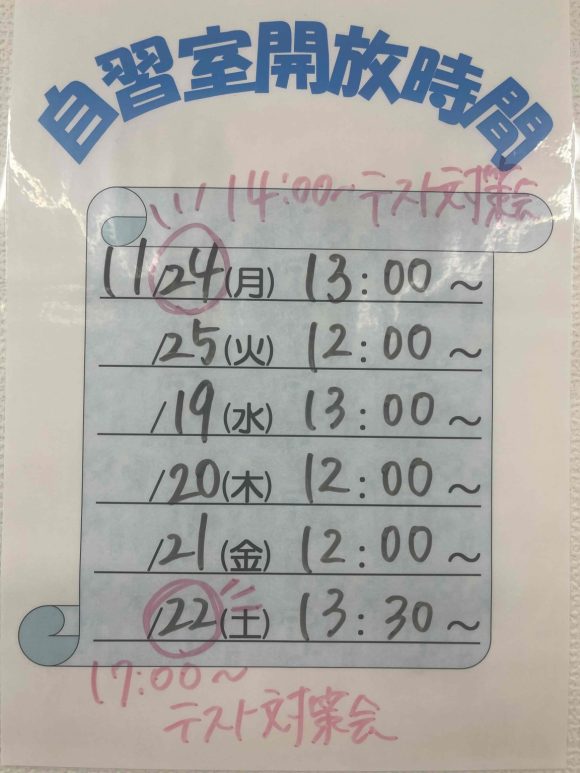 自習室開放時間
14:00~テスト対策会
11/24(月) 13:00~
/25(火) 12:00~
/19(水) 13:00~
/20(木) 12:00~
/21(金) 12:00~
/22(土) 13:30~
17:00~
テスト対策会